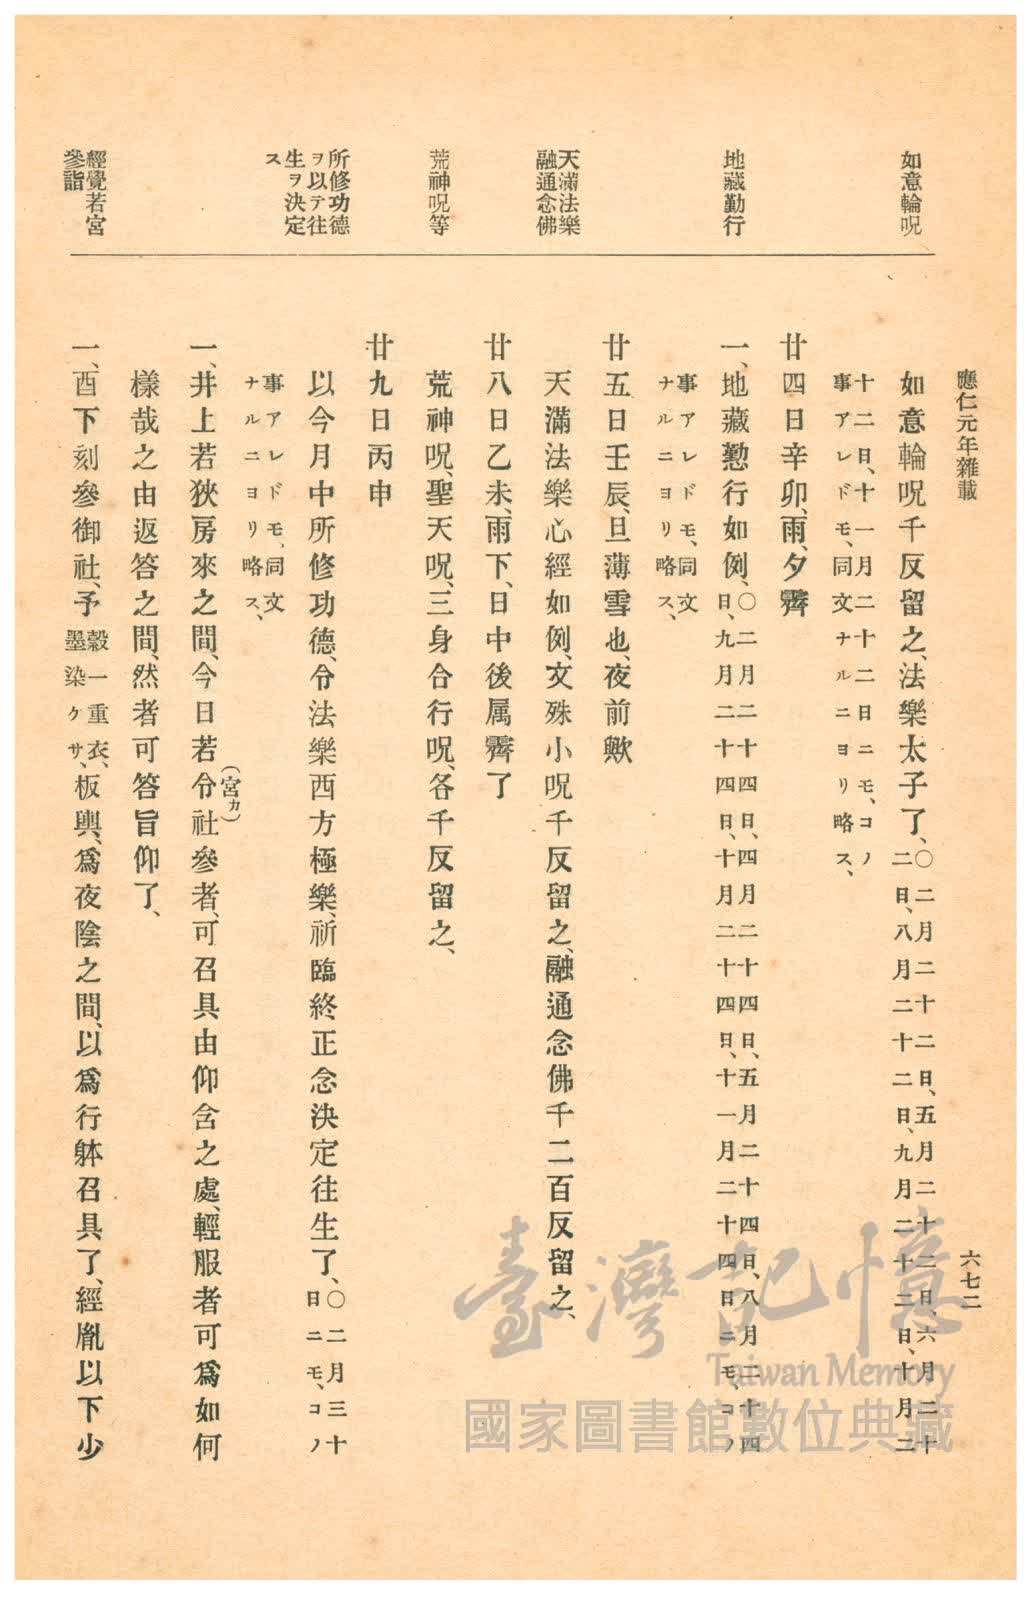 應仁元年雜載
六七二
如意輪呪
地藏勤行
天滿法樂
融通念佛
荒神呪等
所修功德
ヲ以テ往
生ヲ決定
ス
經覺若宮
參詣
如意輪呪千反留之、法樂太子了、○二月二十二日、五月二十二日、六月二十
二日、八月二十二日、九月二十二日、十月二
十二日、十一月二十二日ニモ、コノ
事アレドモ、同文ナルニヨリ略ス、
廿四日辛卯、雨、夕霽
一、地藏懃行如例、○二月二十四日、四月二十四日、五月二十四日、八月二十四
日、九月二十四日、十月二十四日、十一月二十四日ニモ、コノ
事アレドモ、同文
ナルニヨリ略ス、
廿五日壬辰、旦薄雪也、夜前歟
天滿法樂心經如例、文殊小呪千反留之、融通念佛千二百反留之、
廿八日乙未、雨下、日中後属霽了
荒神呪、聖天呪、三身合行呪、各千反留之、
廿九日丙申
以今月中所修功德、令法樂西方極樂、祈臨終正念決定往生了、○二月三十
日ニモ、コノ
事アレドモ、同文
ナルニヨリ略ス、
一、井上若狹房來之間、今日若令(宮カ)社參者、可召具由仰含之處、輕服者可爲如何
樣哉之由返答之間、然者可答旨仰了、
一、酉下刻參御社、予穀一重衣、
墨染ケサ、板輿、爲夜陰之間、以爲行躰召具了、經胤以下少
臺灣記憶
Taiwan Memory
國家圖書館數位典藏